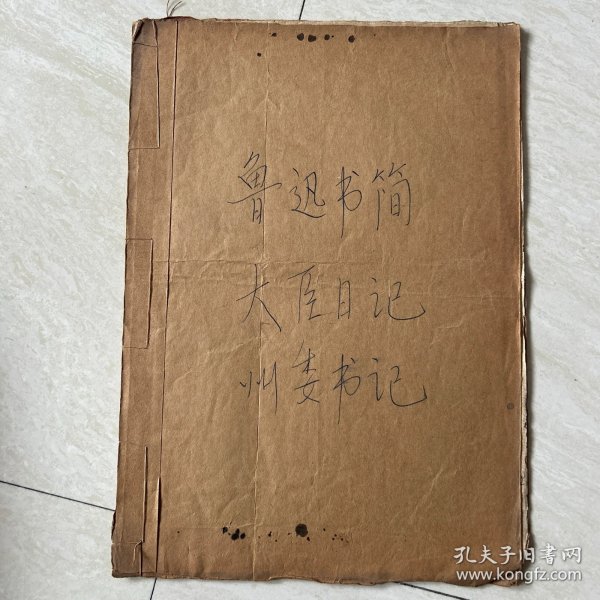 鲁迅书简
大臣日记
州委书记
孔夫子旧书网
www.kongfz.com